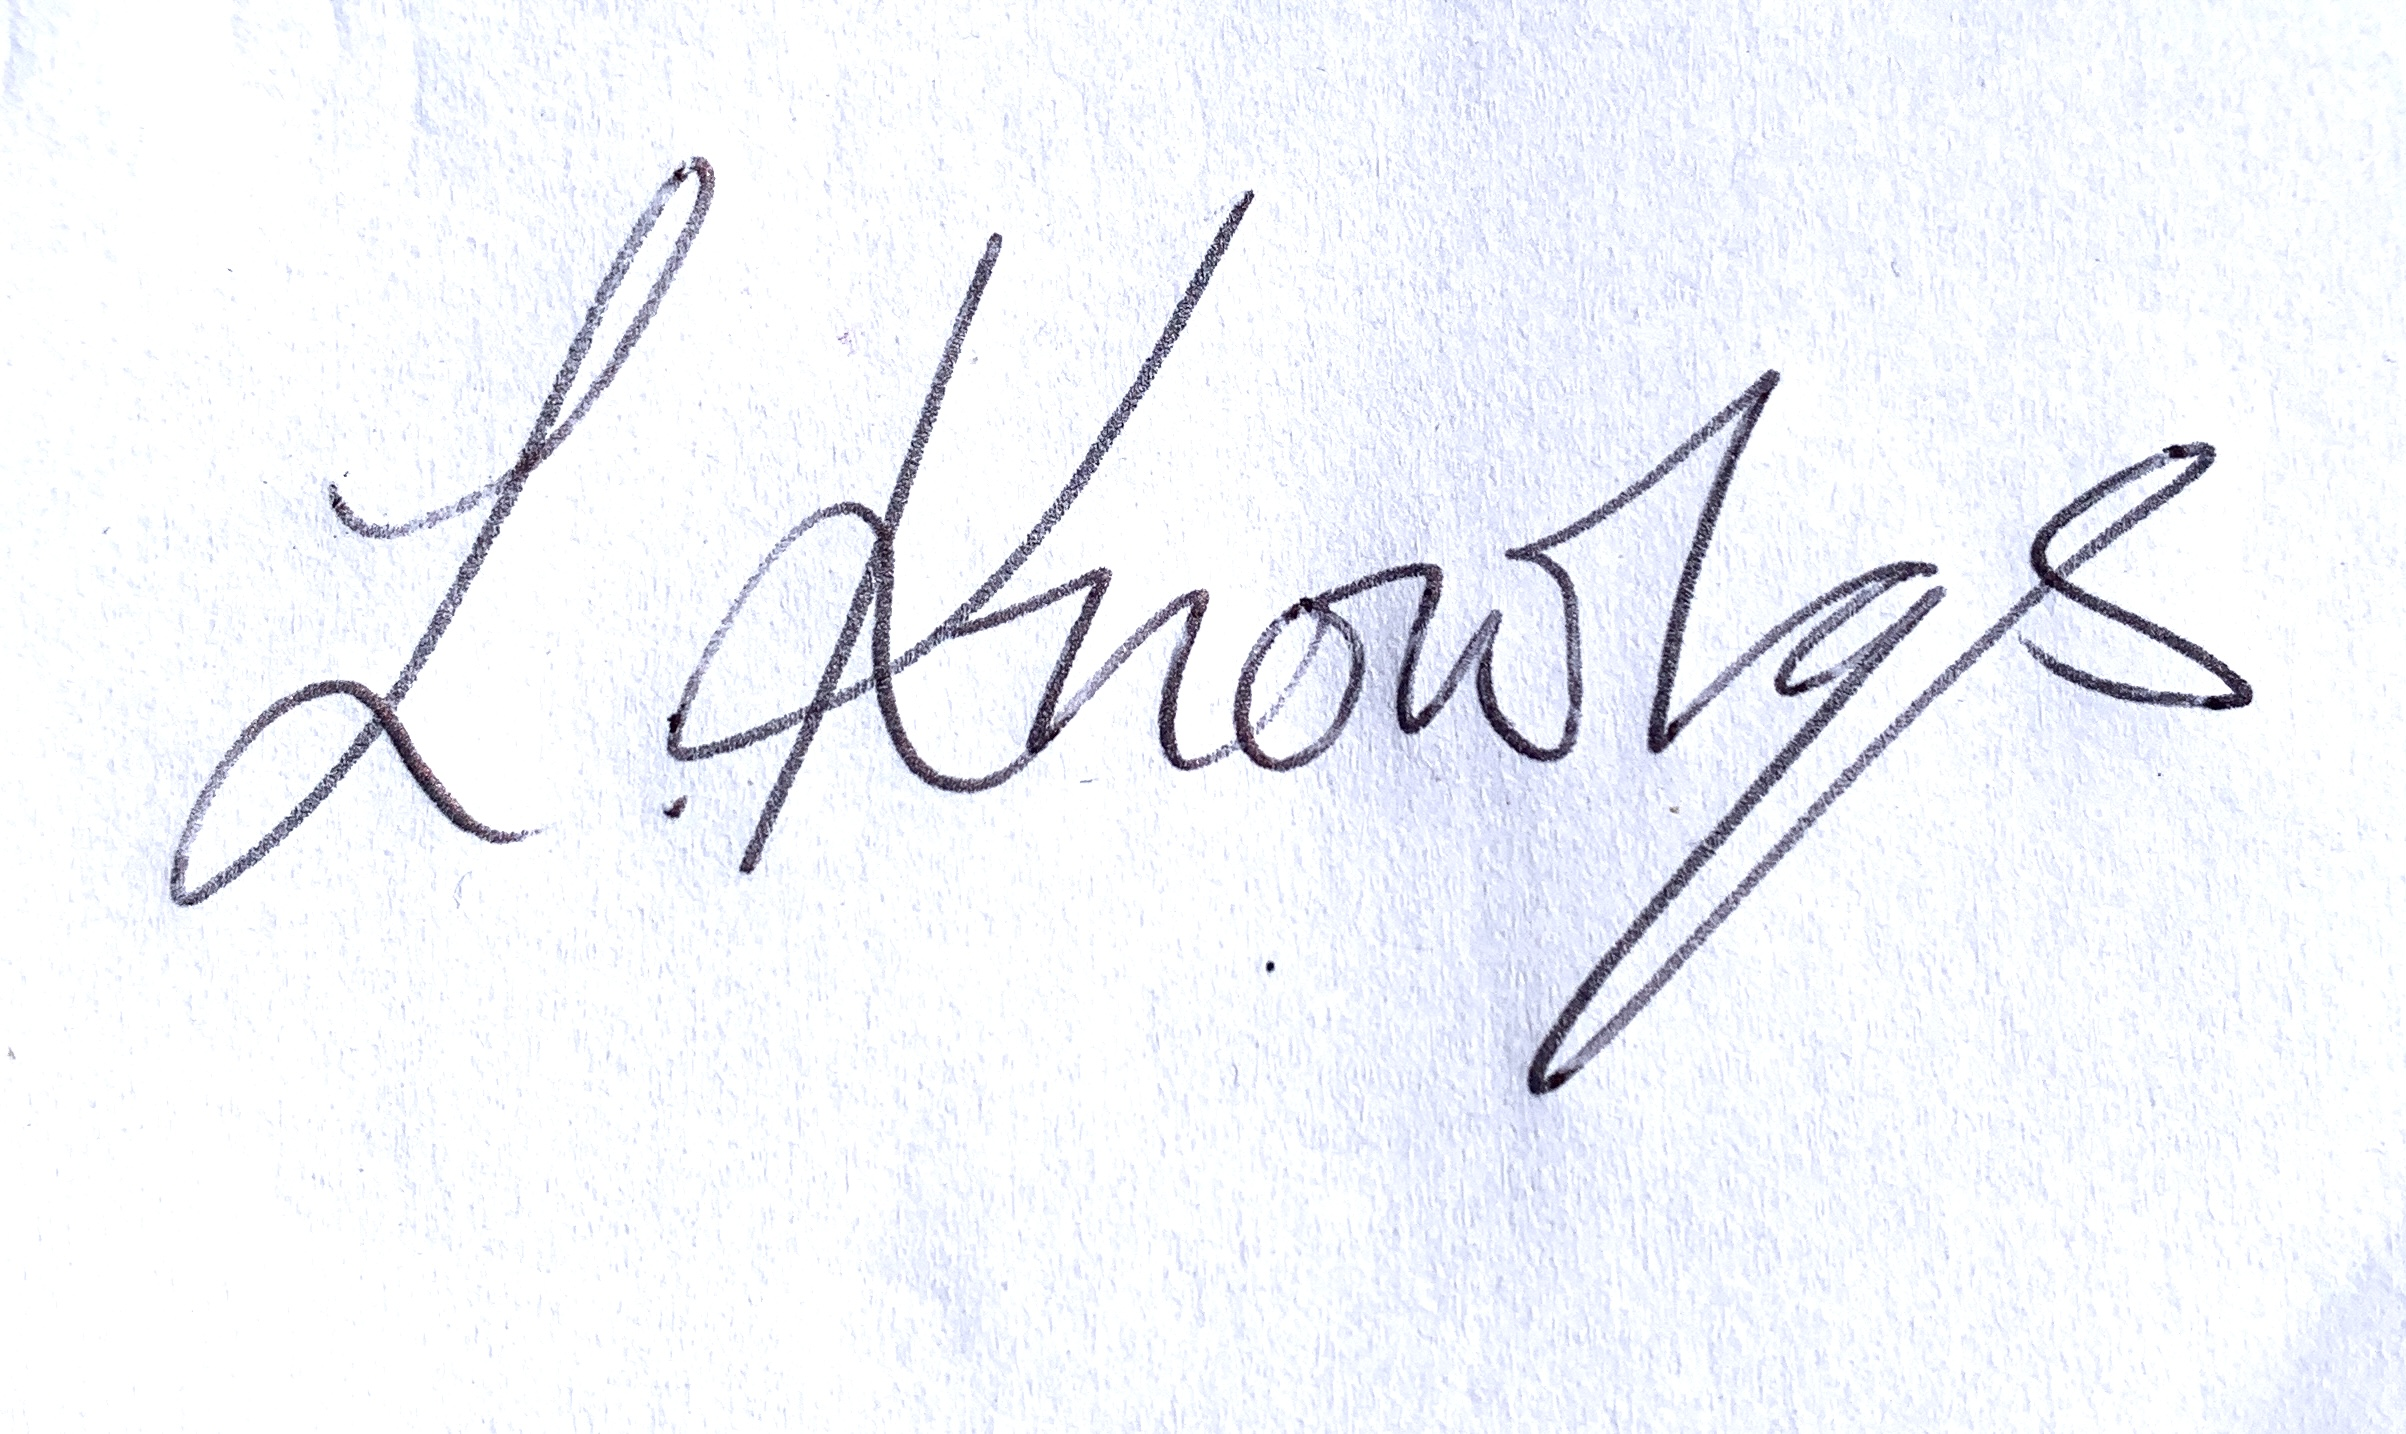 L. Knowlgs